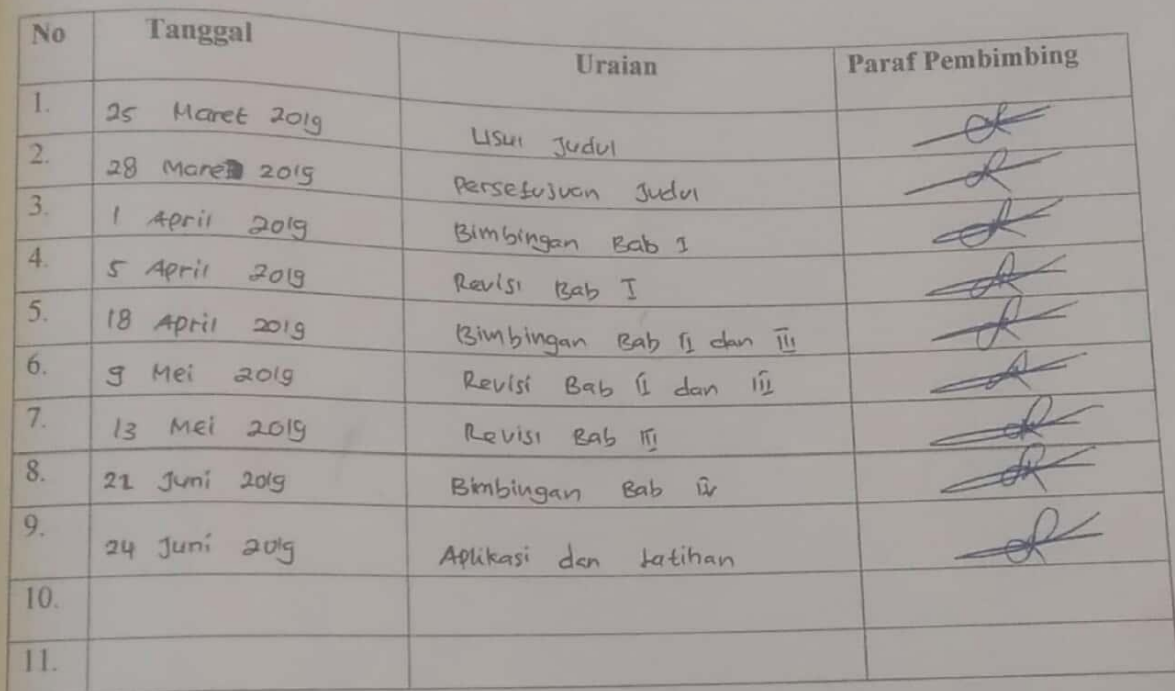 No Tanggal Uraian Paraf Pembimbing
1. 25 Maret 2019 Usul Judul
2. 28 Maret 2019 Persetujuan Judul
3. 1 April 2019 Bimbingan Bab I
4. 5 April 2019 Revisi Bab I
5. 18 April 2019 Bimbingan Bab II dan III
6. 9 Mei 2019 Revisi Bab II dan III
7. 13 Mei 2019 Revisi Bab III
8. 21 Juni 2019 Bimbingan Bab IV
9. 24 Juni 2019 Aplikasi dan Latihan
10.
11.